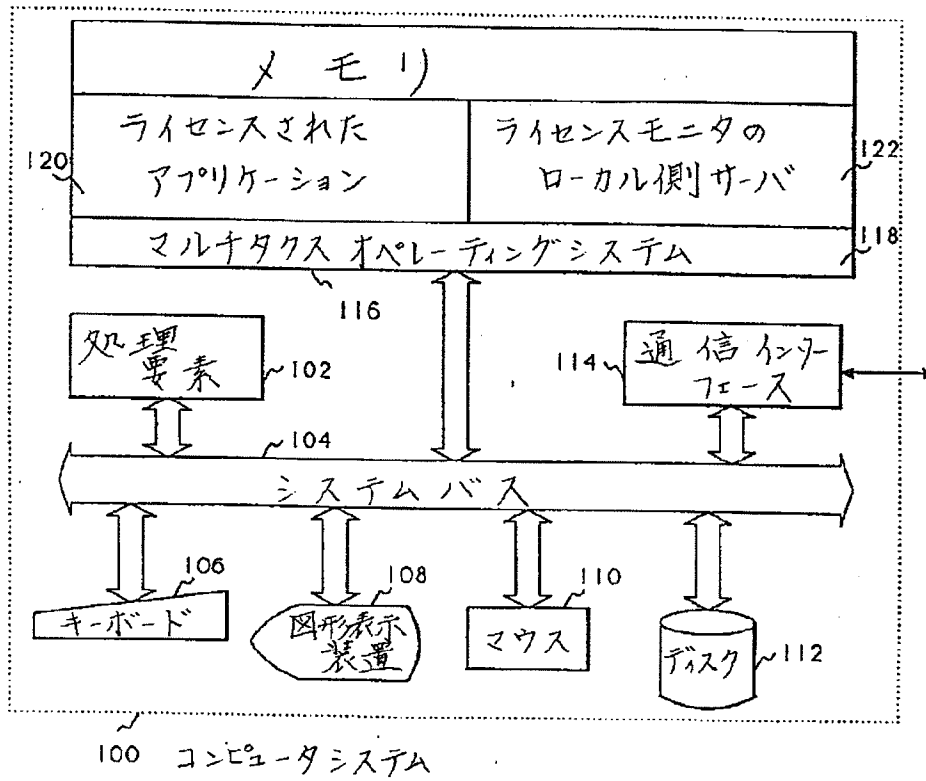 メモリ
ライセンスされた
アプリケーション
ライセンスモニタの
ローカル側サーバ
120
122
マルチタクスオペレーティングシステム
118
116
処理
要素
102
114
通信インター
フェース
104
システムバス
106
キーボード
108
図形表示
装置
110
マウス
ディスク
112
100 コンピュータシステム